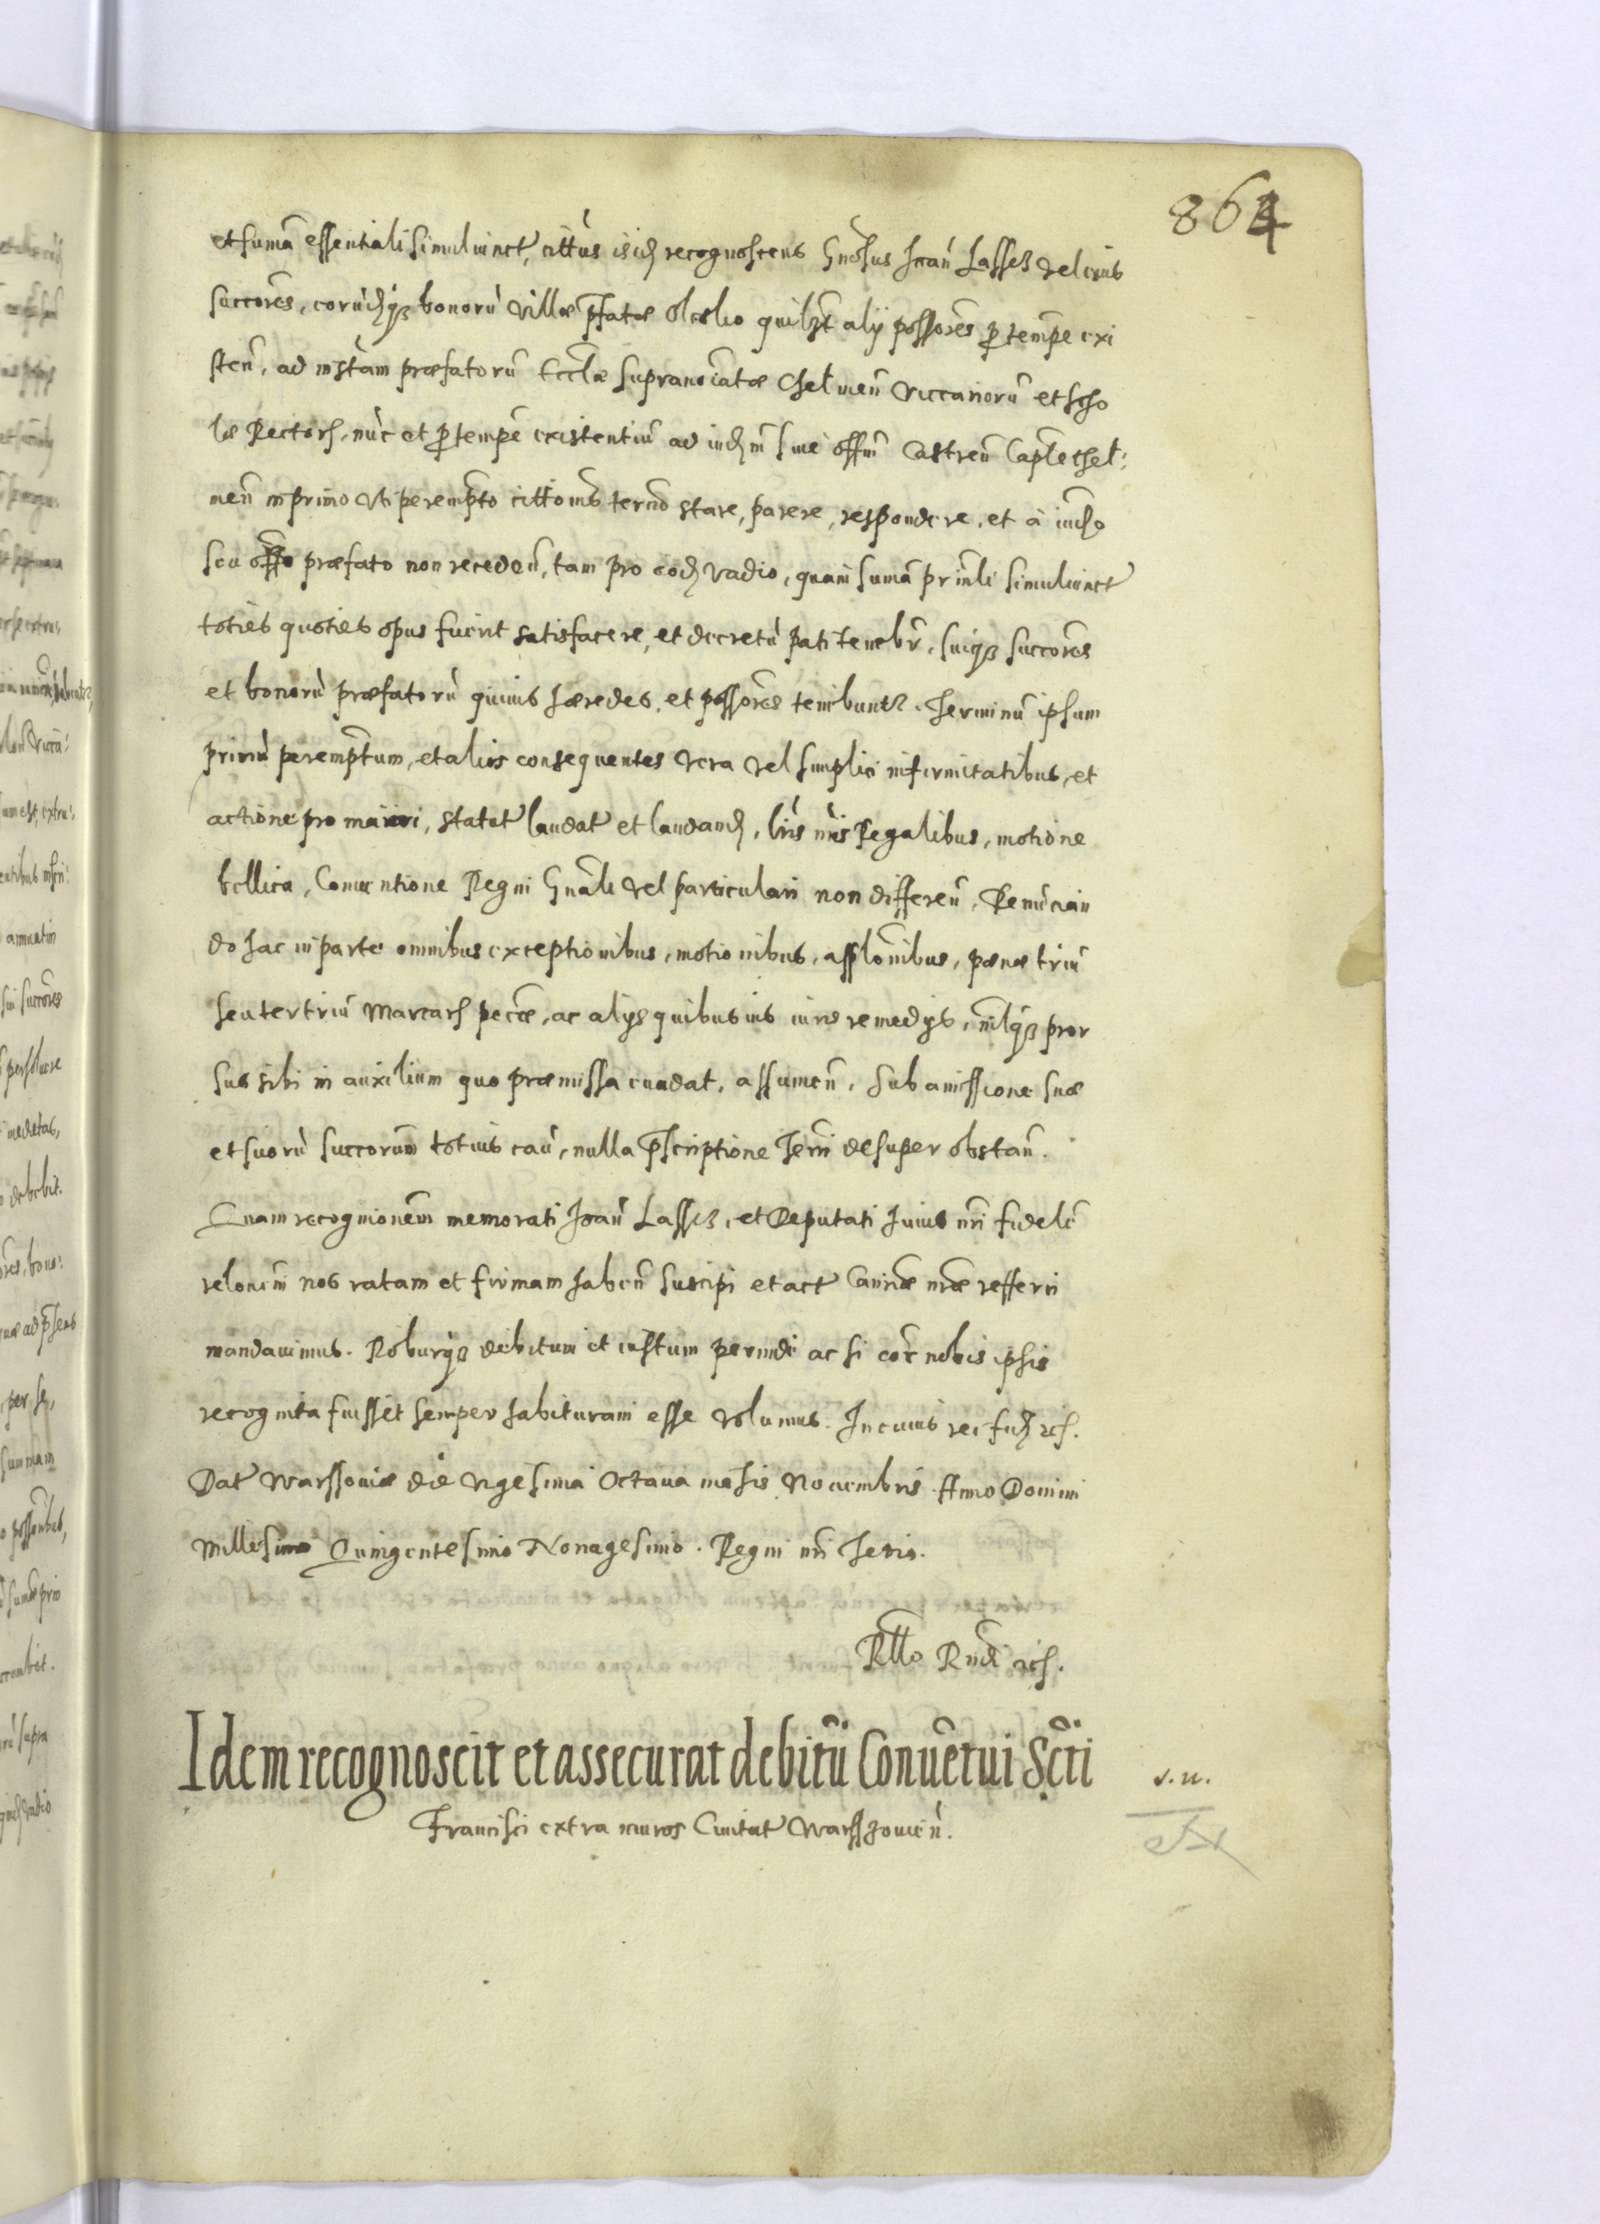 864
et sumã essentiali simul iunct, cittus is idẽ recognoscens Gnosus Joañ Lassez vel eius
succores, corũdẽq bonorũ villæ pfatæ Olesko quilzt alij possores p tempe exi
steñ, ad instãm præfatorũ Ecclæ supranoĩatæ Chelmeñ viccariorũ et scho
læ Rectoris, nũc et p tempe existentiũ ad iudm siue offm Castreñ Captechel:
meñ in primo uti perempto cittonis termo stare, parere, respondere, et à iudo
seu offo præfato non recedeñ, tam pro eodẽ vadio, quam sumã prinli simul iunct
toties quoties opus fuerit satisfacere, et decretũ pati tenebr, suiq succores
et bonorũ præfatorũ quiuis hæredes, et possores tenebunt. Terminũ ipsum
primũ peremptum, et alios consequentes vera vel simplici infirmitatibus, et
actione pro maiori, statut laudat et laudand, lris nris Regalibus, motione
bellica, Conuentione Regni Gnali vel particulari non differeñ, Renũcian
do hac in parte omnibus exceptionibus, motionibus, applonibus, pœnæ triũ
seu ter triũ Marcarũ peccæ, ac alijs quibusuis iuris remedijs, nilq pror
sus sibi in auxilium quo præmissa euadat, assumeñ, sub amissione suæ
et suorũ succorum totius caũ, nulla pscriptione terri desuper obstañ.
Quam recognionem memorati Joañ Lassez, et Deputati huius nri fidelẽ
relonem nos ratam et firmam habeñ suscipi et act Canriæ nræ refferri
mandauimus. Roburq debitum et iustum perinde ac si corã nobis ipsis
recognita fuisset semper habituram esse volumus. In cuius rei fidẽ etc.
Dat Warssouiæ die vigesima Octaua mẽsis Nouembris Anno Domini
Millesimo Quingentesimo Nonagesimo. Regni nri Tertio.
Rllo Rndi etc.
Idem recognoscit et assecurat debitũ Conuẽtui Scti
Francisci extra muros Ciuitat Warsszouieñ.